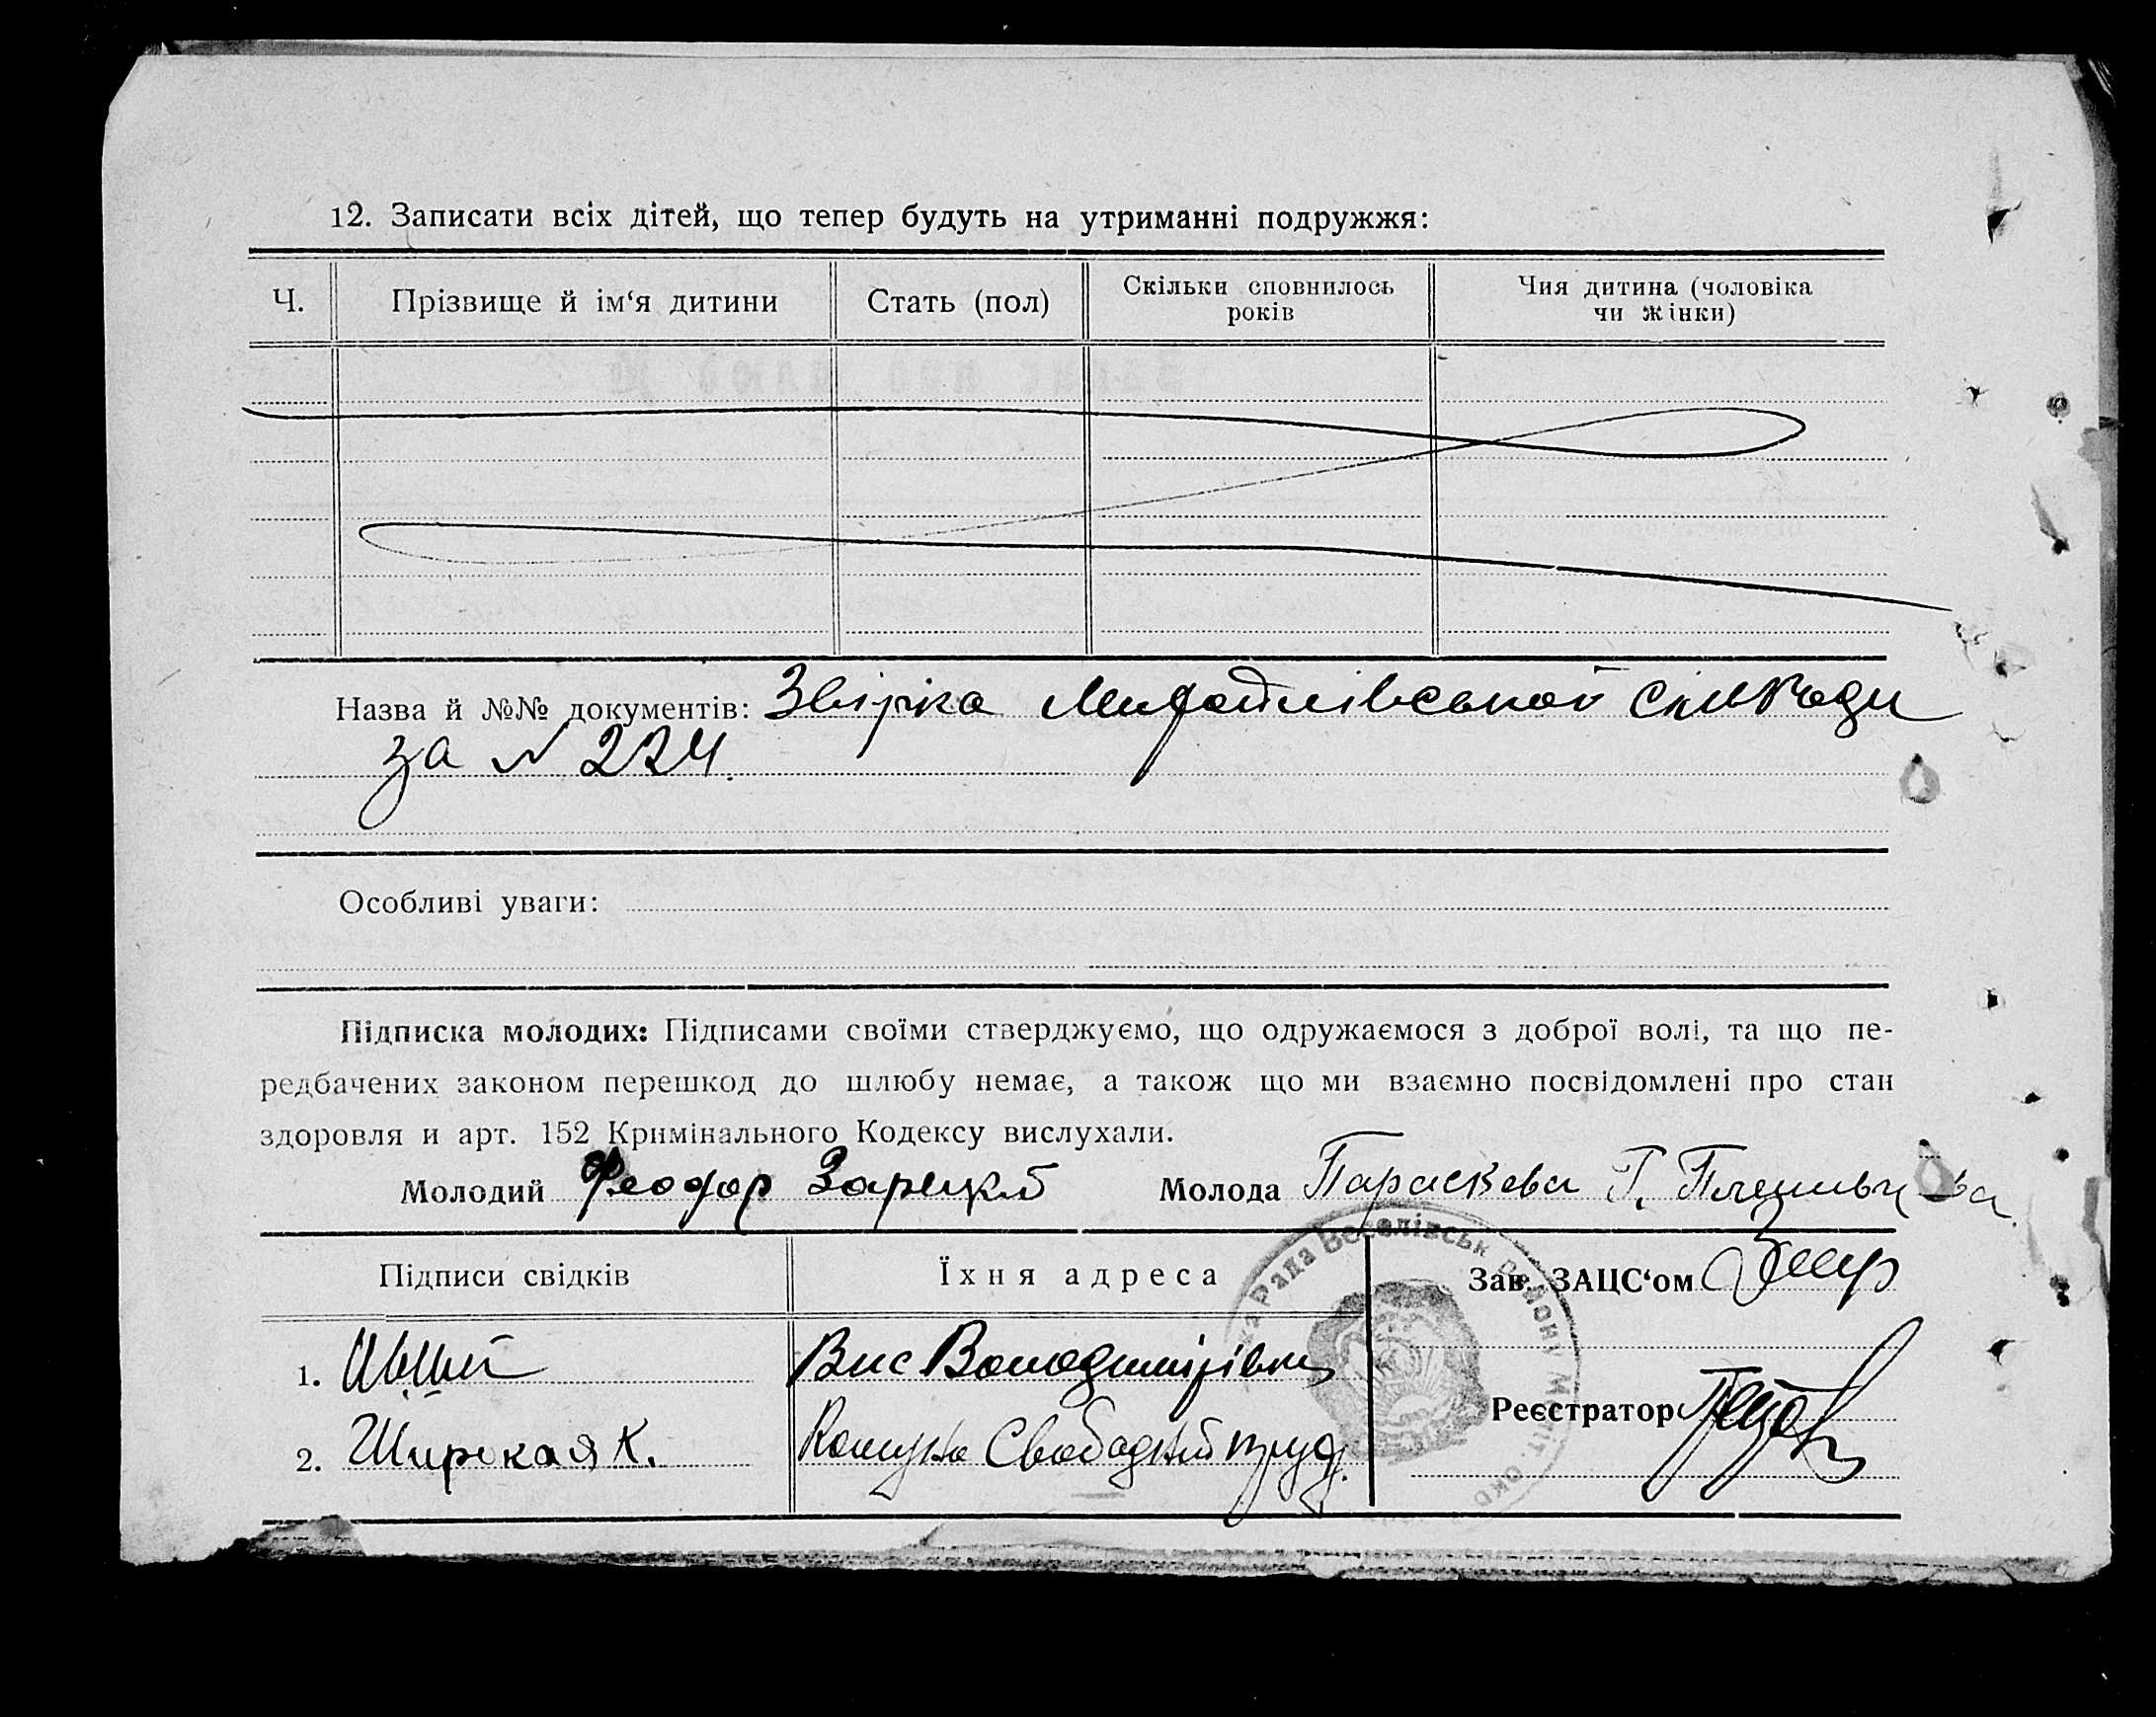 12. Записати всіх дітей, що тепер будуть на утриманні подружжя:
Ч. Прізвище й ім‘я дитини Стать (пол) Скільки сповнилось років Чия дитина (чоловіка чи жінки)
Назва й №№ документів: Звірка Михайлівської сільради
за № 224.
Особливі уваги:
Підписка молодих: Підписами своїми стверджуємо, що одружаємося з доброї волі, та що пе-
редбачених законом перешкод до шлюбу немає, а також що ми взаємно посвідомлені про стан
здоровля и арт. 152 Кримінального Кодексу вислухали.
Молодий Феодор Зарецкий Молода Параскева Г.
Підписи свідків Їхня адреса Зав. ЗАЦС‘ом
1. Вис Володимирівка
Реєстратор
2. Ширская К. Комуна Свободний труд.
Рада Веселівськ. Району Меліт. окр